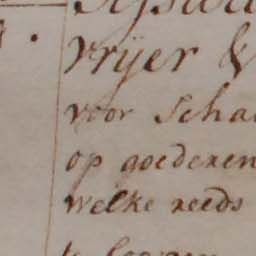 vrijer &
voor Scha
op goederen
welke reeds